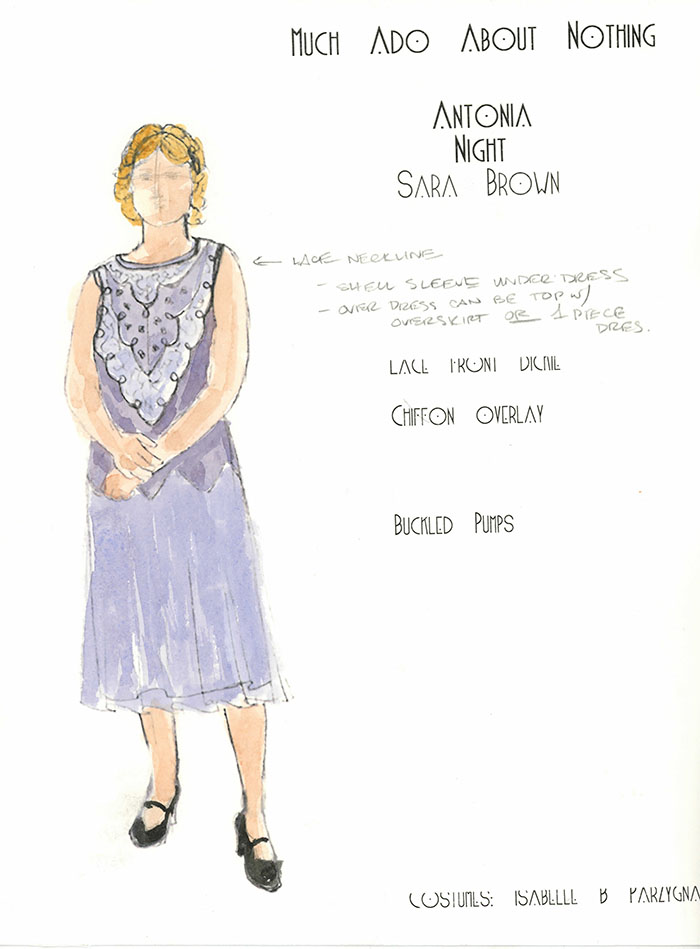 Much Ado About Nothing
Antonia
Night
Sara Brown
← LACE NECKLINE
- SHELL SLEEVE UNDER DRESS
- OVER DRESS CAN BE TOP W/
OVERSKIRT OR 1 PIECE
DRES.
Lace Front Dickie
Chiffon overlay
Buckled Pumps
Costumes: Isabelle B Parzygna